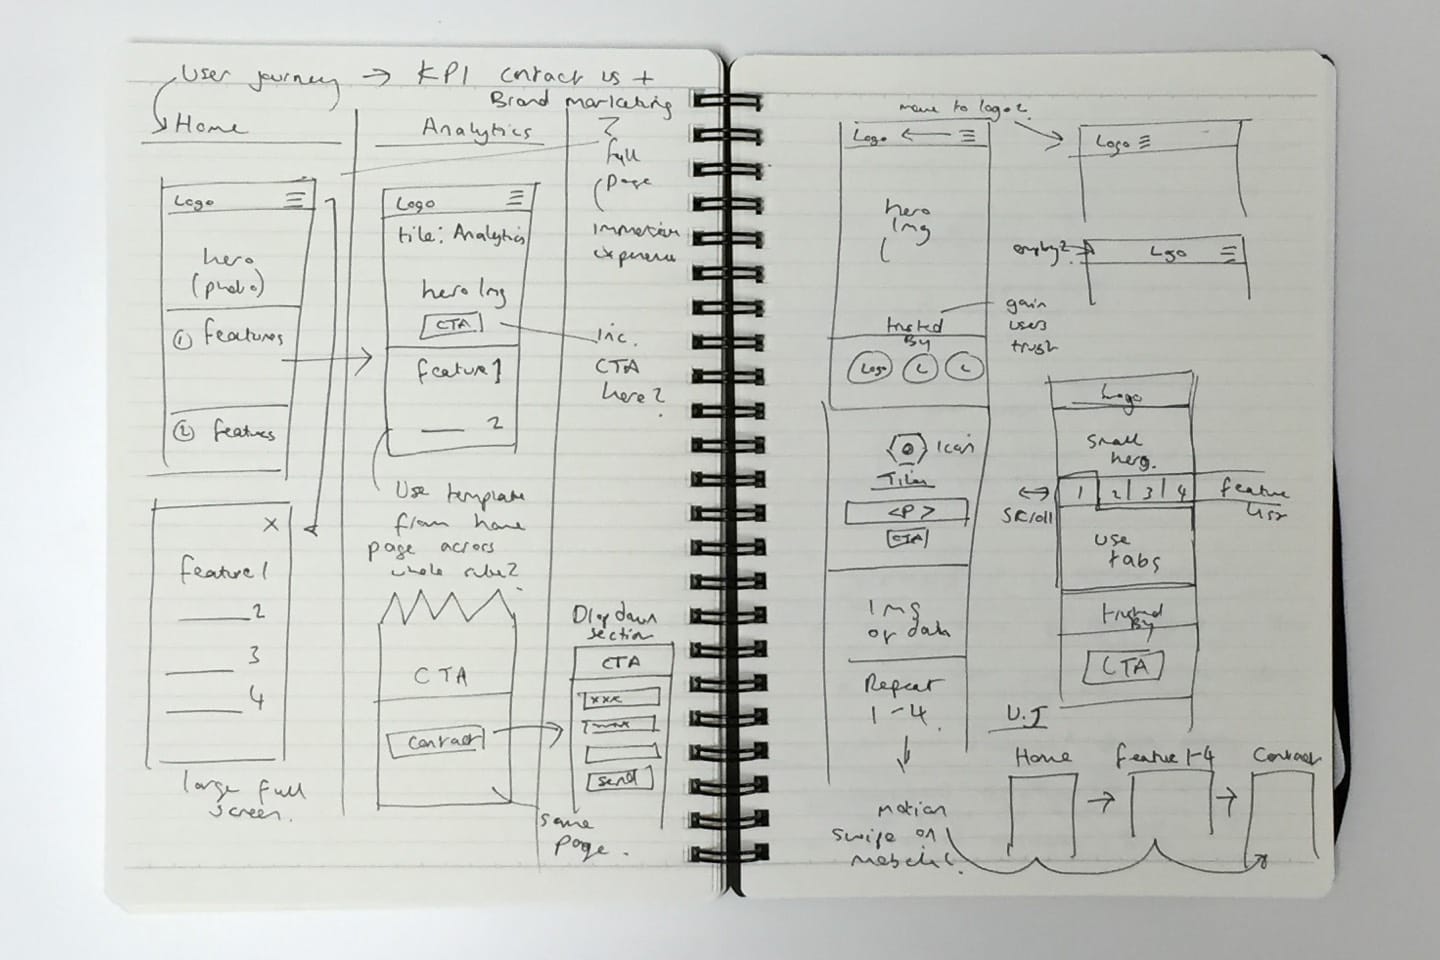 User journey → KPI contact us +
Brand marketing
Home
Analytics
Logo
hero
(photo)
① features
② features
X
feature 1
2
3
4
large full
screen.
Logo
title: Analytics
hero Img
CTA
feature 1
2
Use template
from home
page across
whole
CTA
contact
full
page
immersive
experience
inc.
CTA
here?
Drop down
section
CTA
xxx
send
same
page.
move to logo?
Logo ←
hero
Img
trusted
By
Logo L L
Icon
Title
<P>
CTA
Img
or data
Repeat
1-4
motion
swipe on
Logo
empty?
Logo
gain
users
trust
Logo
small
hero.
↔ 1 2 | 3 | 4 feature
scroll list
use
tabs
trusted
By
CTA
U.J
Home → feature 1-4 → Contact